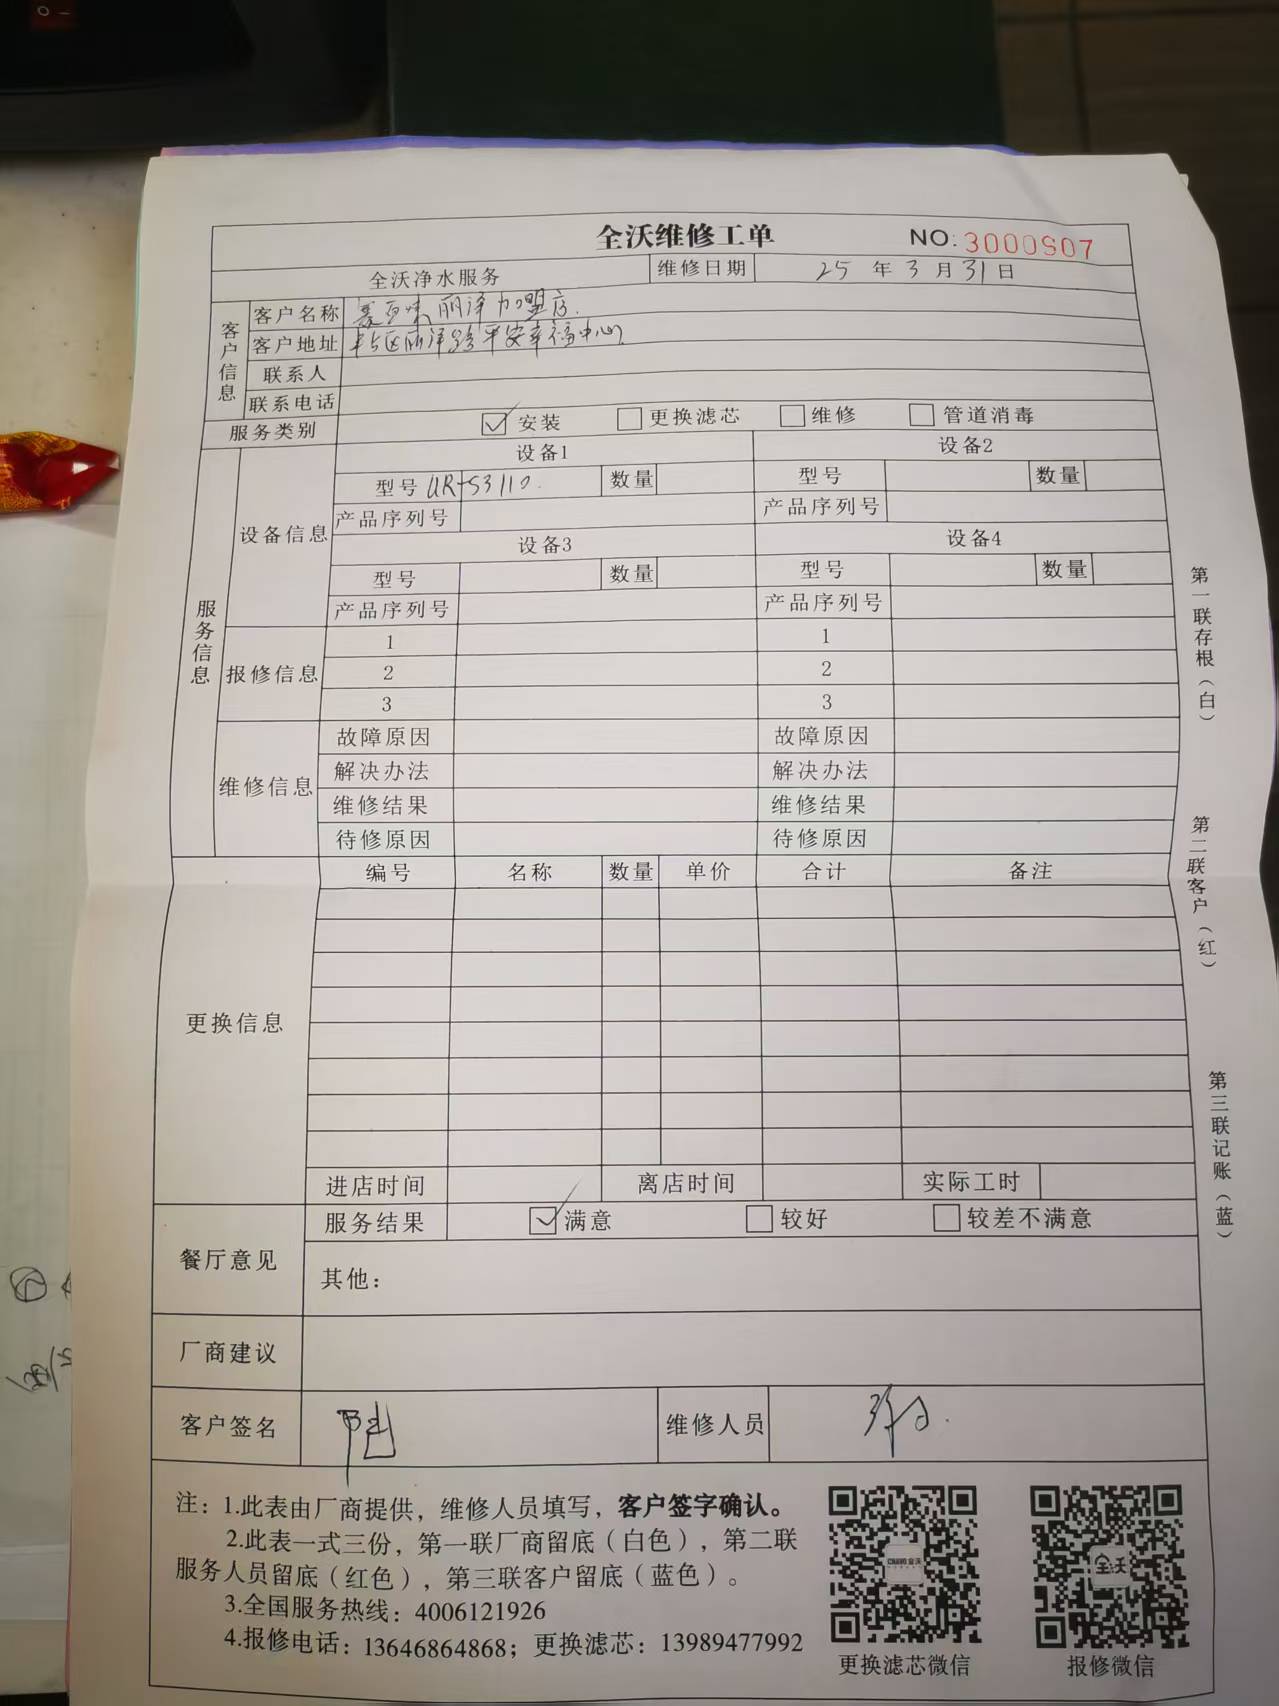 全沃维修工单 NO: 3000907
全沃净水服务 维修日期 25 年 3 月 31 日
客户信息
客户名称 丽泽加盟店.
客户地址 丰台区丽泽路平安幸福中心
联系人
联系电话
服务类别 安装 更换滤芯 维修 管道消毒
服务信息
设备信息
设备1 设备2
型号 UR-S3110. 数量 型号 数量
产品序列号 产品序列号
设备3 设备4
型号 数量 型号 数量
产品序列号 产品序列号
报修信息
1 1
2 2
3 3
维修信息
故障原因 故障原因
解决办法 解决办法
维修结果 维修结果
待修原因 待修原因
更换信息
编号 名称 数量 单价 合计 备注
进店时间 离店时间 实际工时
餐厅意见
服务结果 满意 较好 较差不满意
其他：
厂商建议
客户签名 维修人员
注：1.此表由厂商提供，维修人员填写，客户签字确认。
2.此表一式三份，第一联厂商留底（白色），第二联
服务人员留底（红色），第三联客户留底（蓝色）。
3.全国服务热线：4006121926
4.报修电话：13646864868；更换滤芯：13989477992
全沃
更换滤芯微信 报修微信
第一联存根（白）
第二联客户（红）
第三联记账（蓝）